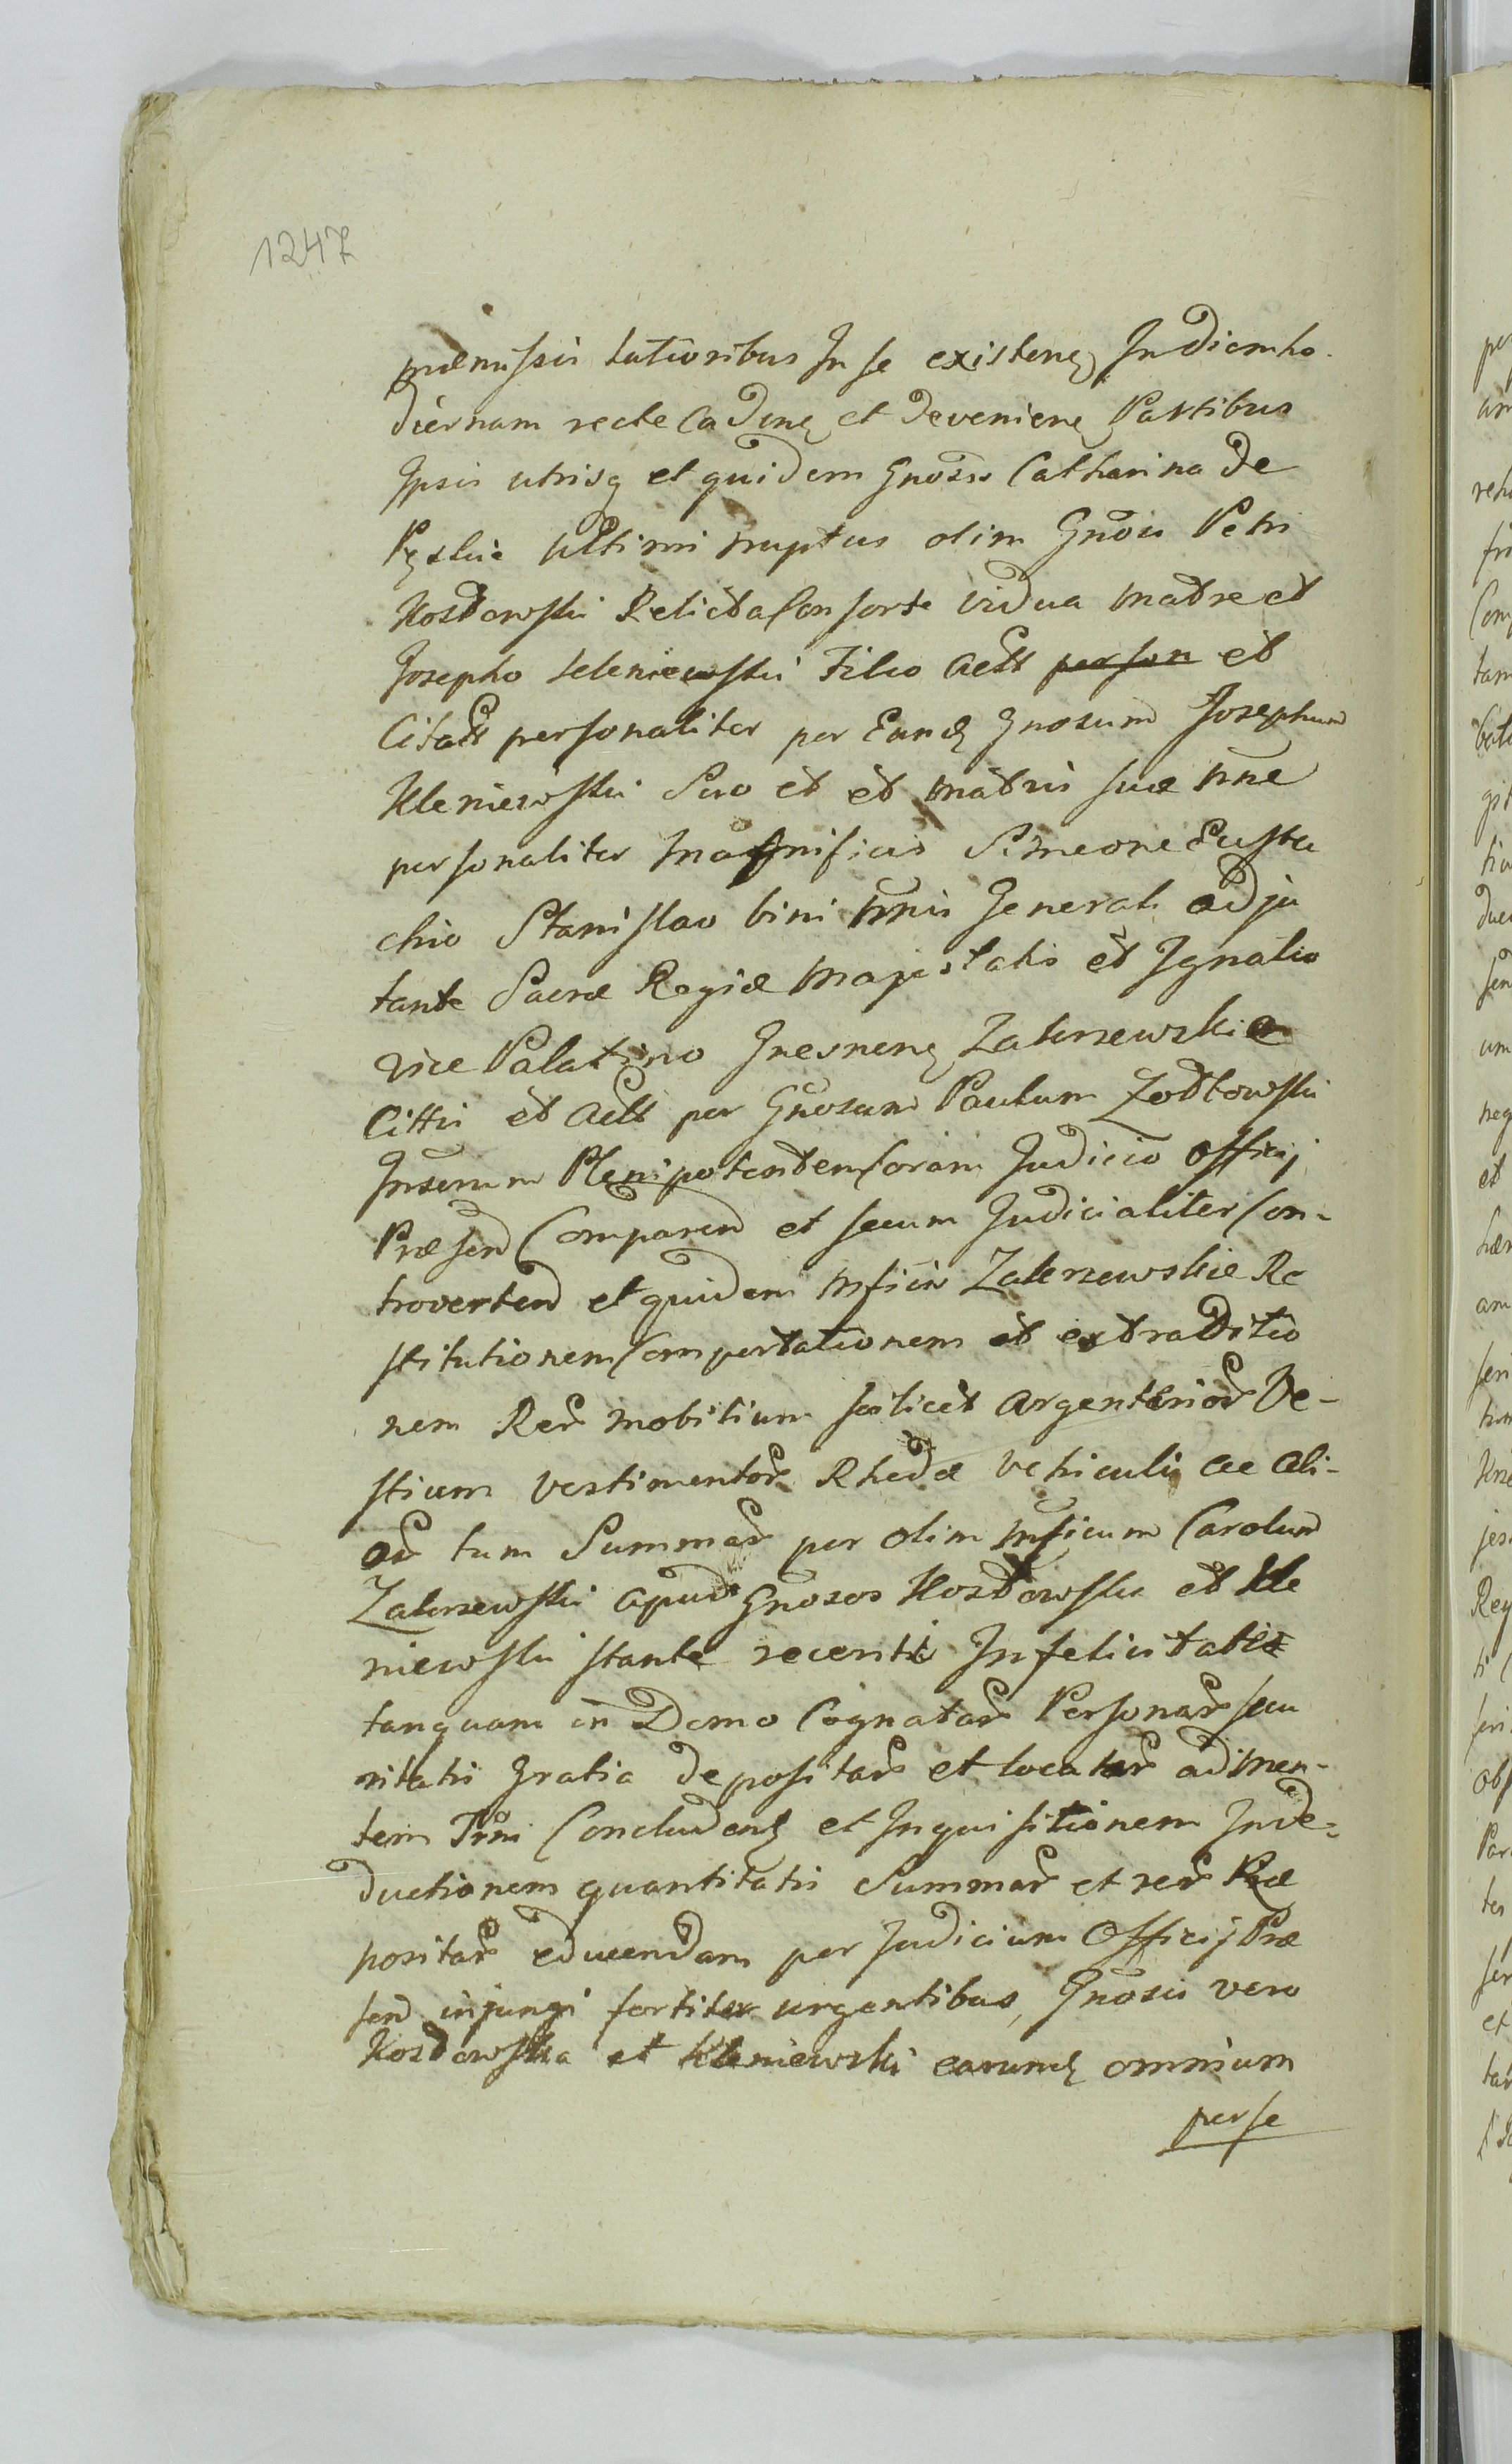 1247
præmissis latioribus In se existenꝫ In Diem ho-
diernam recte Cadenꝫ et Devenienꝫ Partibus
Ipsis utrisq et quidem Gnosis Catharina de
ultimi nuptus olim Gnosi Petri
Kossowski Relicta Consorte vidua matre et
Josepho Kleniewski Filio actt person et
Citatt personaliter per Eundꝫ Gnosum Josephum
Kleniewski Suo et et matris suæ nne
personaliter Magnificis Simeone Eusta
chio Stanislao bini nnis General adju
tante Sacræ Regiæ Majestatis et Ignatio
vice Palatino Gnesnenꝫ Zakrzewskie
Cittis et actt per Gnosum Paulum Zołtowski
Insernm Plenipotentem Coram Judicio Officij
Præsend Comparend et secum Judicialiter Con-
trovertend et quidem Mficis Zakrzewskie Re
stitutionem Comportationem et extraditio
nem Rer mobilium scilicet argenterior Ve-
stium vestimentor Rhedæ vehiculi ac ali-
or tum Summar per olim Mficum Carolum
Zakrzewski apud Gnosos Kossowskie et Kle
niewski stante recenti Infelicitate
tanquam in Domo Cognatar Personar secu
ritatis Gratia depositar et locatar ad men-
tem Trni Concludenꝫ et Inquisitionem In de-
ductionem quantitatis Summar et rer Præ
positar educendam per Judicium Officij Præ
send injungi fortiter urgentibus, Gnosis vero
Kossowska et Kleniewski earundꝫ omnium
per se